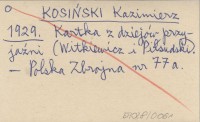 KOSIŃSKI Kazimierz
1929. Kartka z dziejów przy-
jaźni (Witkiewicz i Piłsudski.
– Polska Zbrojna nr 77a.